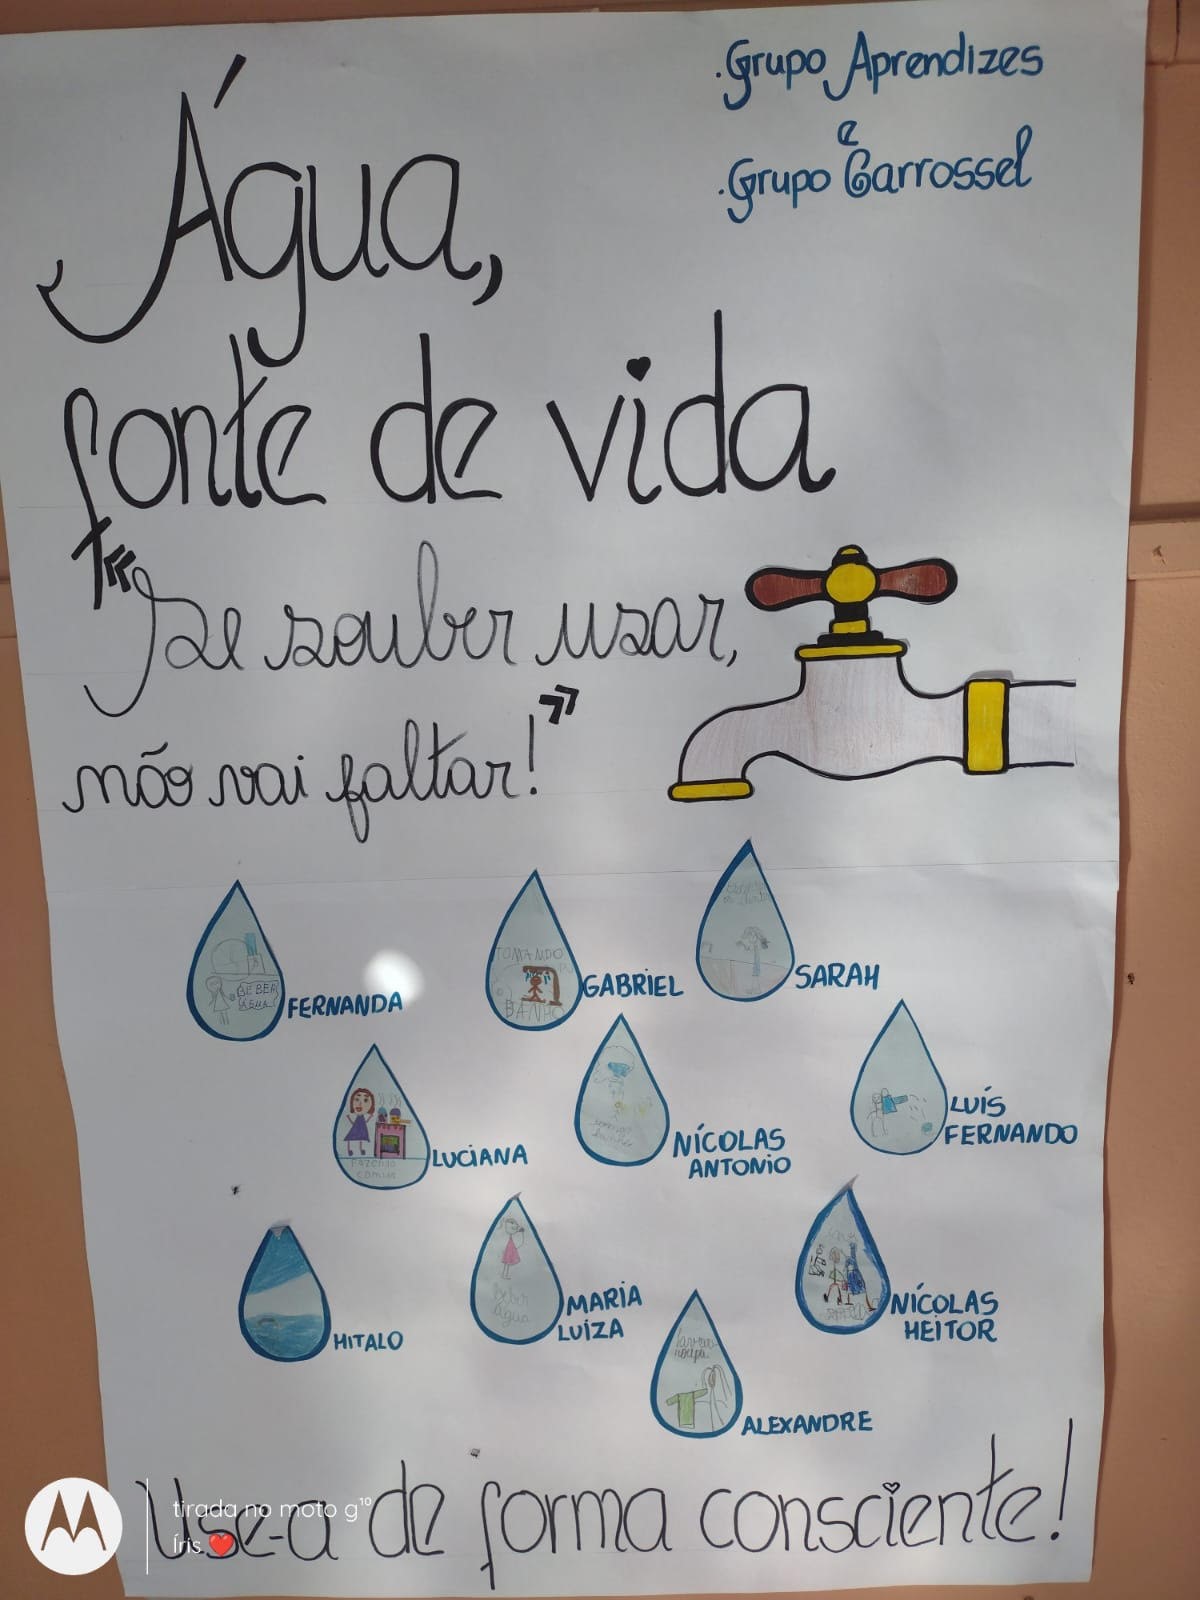 .Grupo Aprendizes
e
.Grupo Carrossel
Água,
fonte de vida
"Se souber usar,
não vai faltar!"
BEBER
ÁGUA
FERNANDA
TOMANDO
BANHO
GABRIEL
SARAH
Fazendo
comida
LUCIANA
NÍCOLAS
ANTONIO
LUÍS
FERNANDO
HITALO
beber
água
MARIA
LUIZA
NÍCOLAS
HEITOR
ALEXANDRE
Use-a de forma consciente!
tirada no moto g¹⁰
Íris ❤️